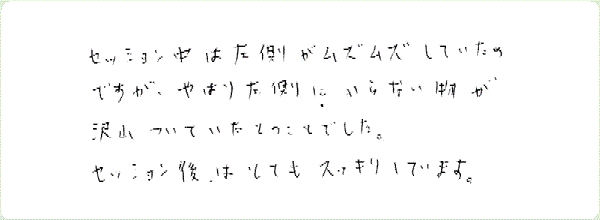 セッション中は左側がムズムズしていたの
ですが、やはり左側にいらない物が
沢山ついていたとのことでした。
セッション後はとてもスッキリしています。